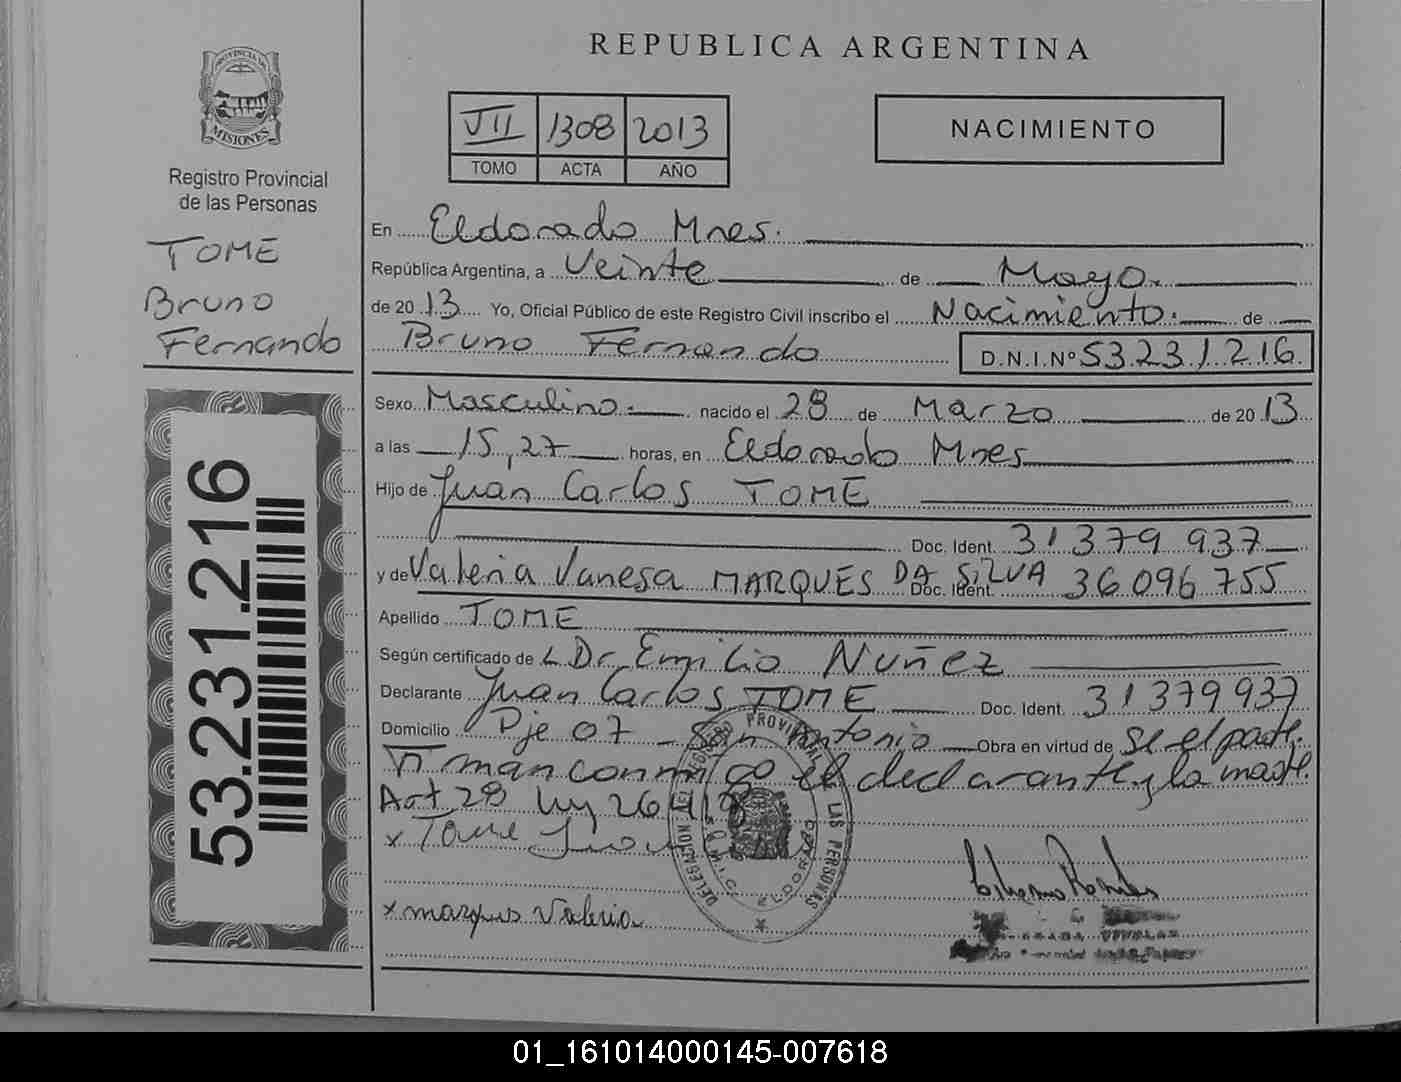 PROVINCIA DE
MISIONES
Registro Provincial
de las Personas
TOME
Bruno
Fernando
53.231.216
REPUBLICA ARGENTINA
VII 1308 2013
TOMO ACTA AÑO
NACIMIENTO
En Eldorado Mnes.
República Argentina, a Veinte de Mayo.
de 20 13 Yo, Oficial Público de este Registro Civil inscribo el Nacimiento. de
Bruno Fernando D.N.I.Nº 53.231.216.
Sexo Masculino. nacido el 28 de Marzo de 20 13
a las 15,27 horas, en Eldorado Mnes
Hijo de Juan Carlos TOME
Doc. Ident. 31 379 937
y de Valeria Vanesa MARQUES DA SILVA Doc. Ident. 36 096 755
Apellido TOME
Según certificado de L Dr. Emilio Nuñez
Declarante Juan Carlos TOME Doc. Ident. 31 379 937
Domicilio Pje 07 San Antonio Obra en virtud de Se el padre.
Firman conmigo el declarante y la madre.
Art 28 ley 26413
x Tome Juan
x marques Valeria
DELEGACION DEL REGISTRO PROVINCIAL DE LAS PERSONAS
ELDORADO
01_161014000145-007618